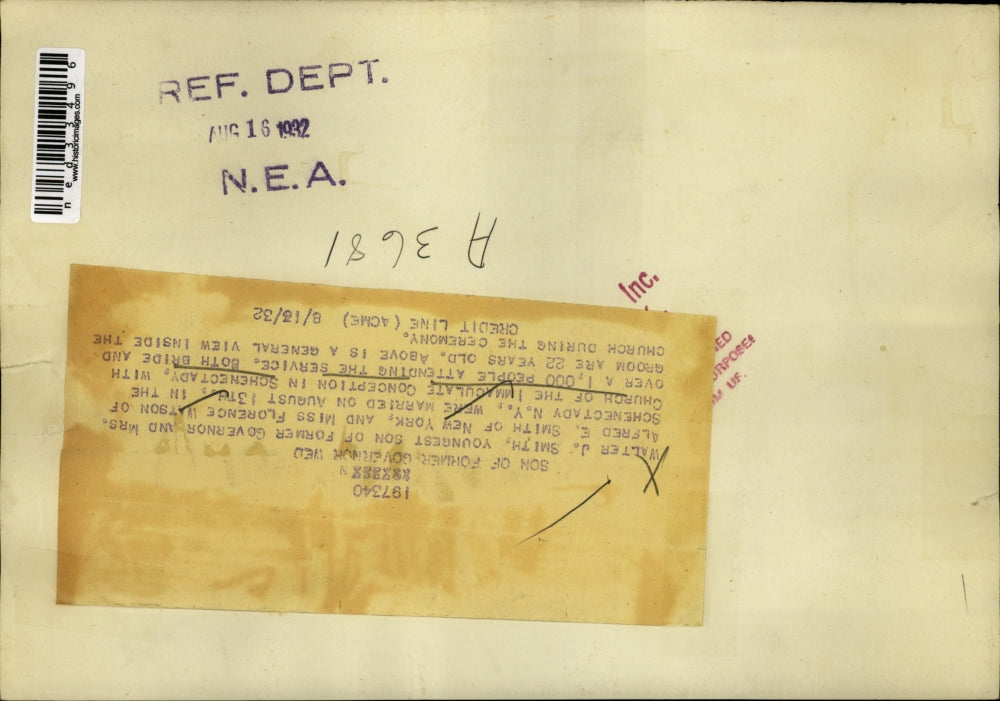 REF. DEPT.
AUG 16 1932
N.E.A.
ned33496
www.historicimages.com
A 3681
Inc.
197340
SON OF FORMER GOVERNOR WED
WALTER J. SMITH, YOUNGEST SON OF FORMER GOVERNOR AND MRS.
ALFRED E. SMITH OF NEW YORK, AND MISS FLORENCE WATSON OF
SCHENECTADY N.Y., WERE MARRIED ON AUGUST 13TH IN THE
CHURCH OF THE IMMACULATE CONCEPTION IN SCHENECTADY, WITH
OVER A 1,000 PEOPLE ATTENDING THE SERVICE. BOTH BRIDE AND
GROOM ARE 22 YEARS OLD. ABOVE IS A GENERAL VIEW INSIDE THE
CHURCH DURING THE CEREMONY.
CREDIT LINE (ACME) 8/13/32
X